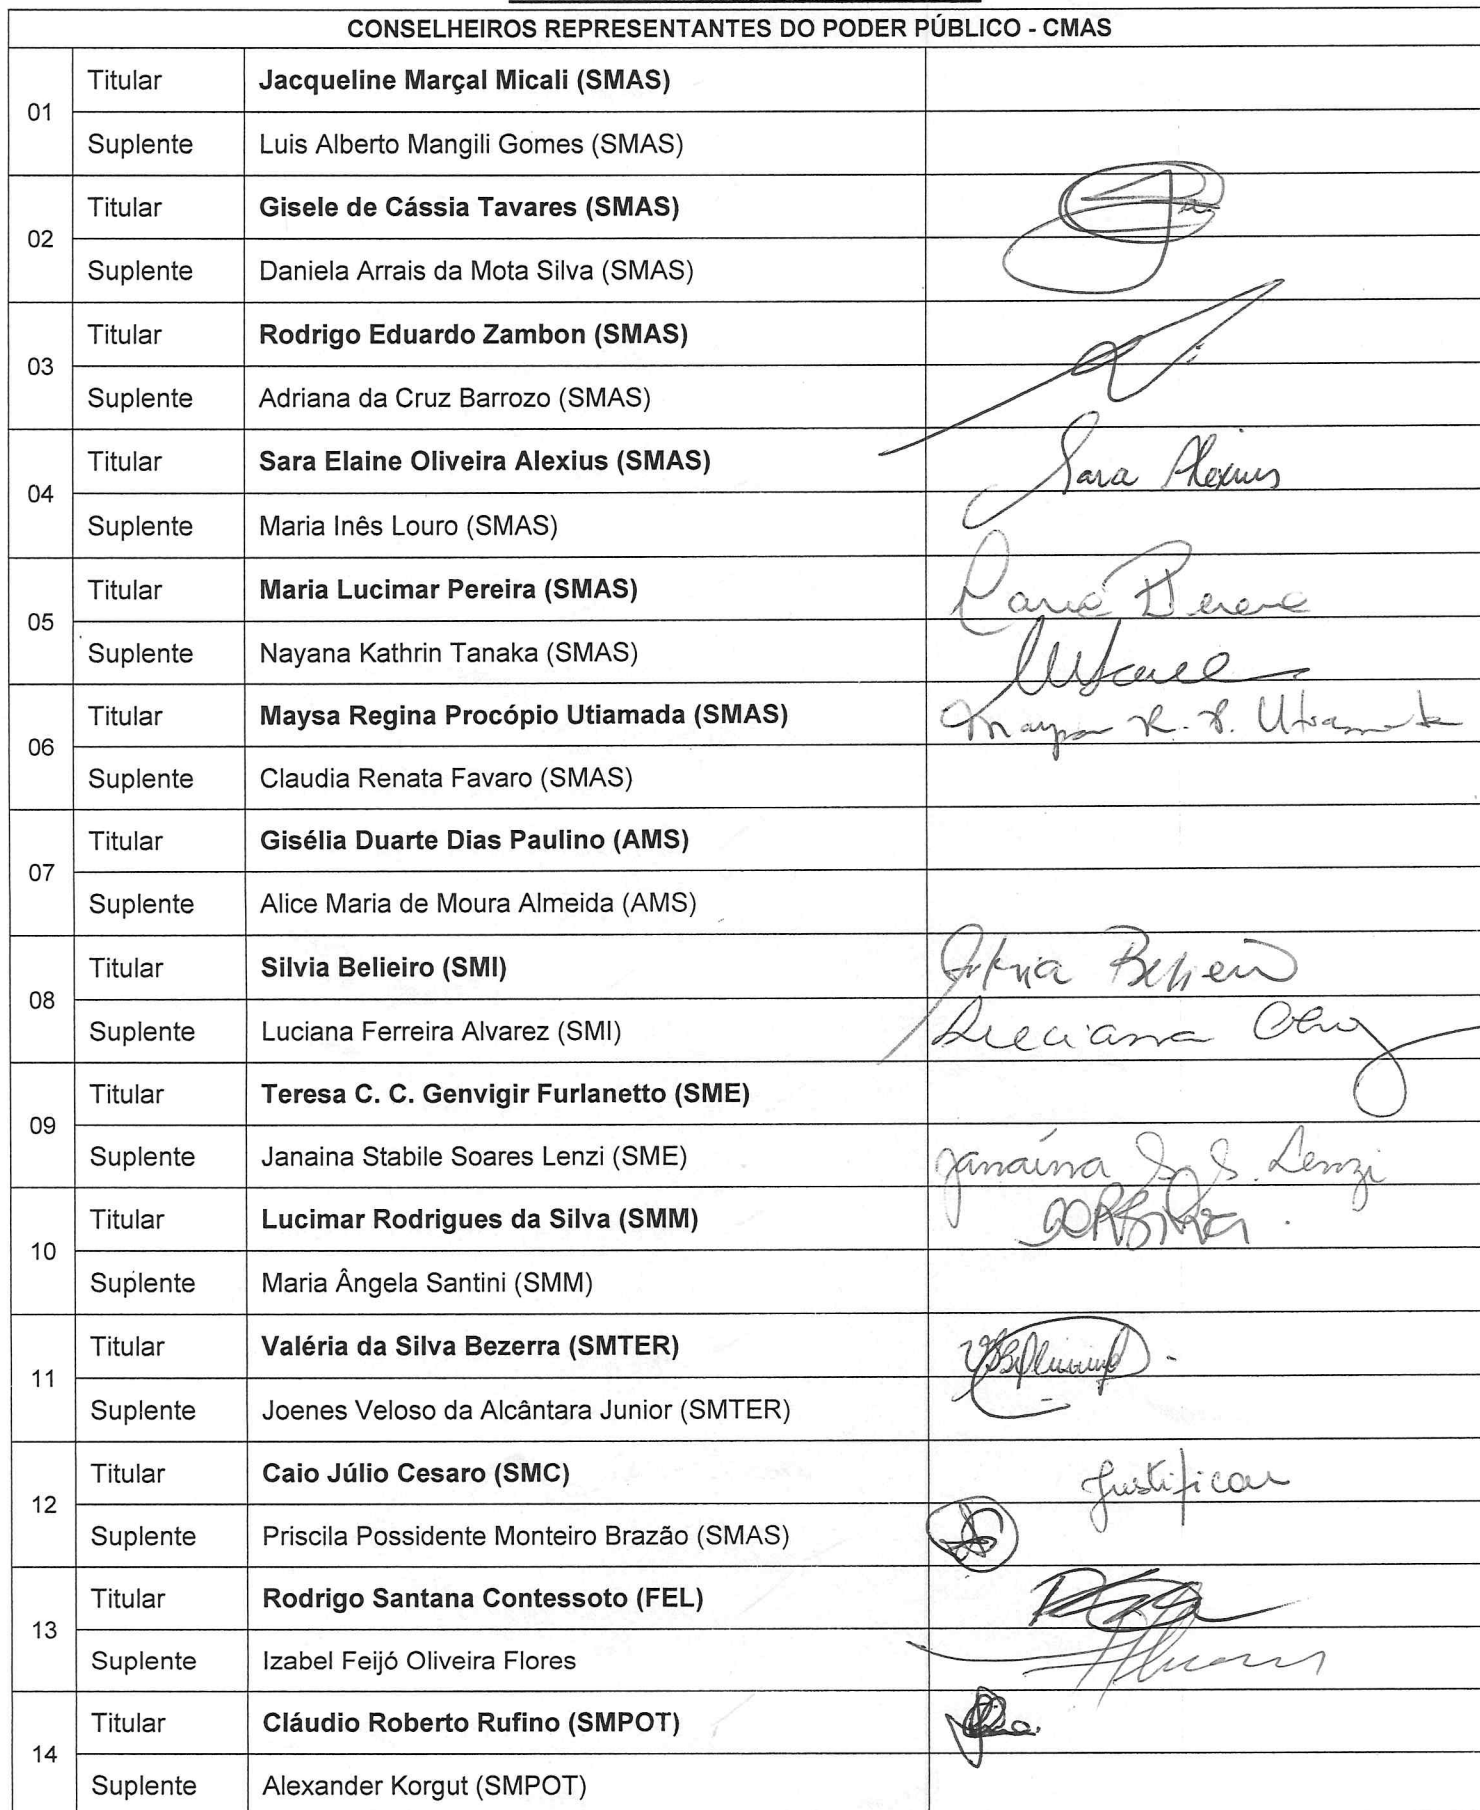 CONSELHEIROS REPRESENTANTES DO PODER PÚBLICO - CMAS
01
Titular Jacqueline Marçal Micali (SMAS)
Suplente Luis Alberto Mangili Gomes (SMAS)
02
Titular Gisele de Cássia Tavares (SMAS)
Suplente Daniela Arrais da Mota Silva (SMAS)
03
Titular Rodrigo Eduardo Zambon (SMAS)
Suplente Adriana da Cruz Barrozo (SMAS)
04
Titular Sara Elaine Oliveira Alexius (SMAS) Sara Alexius
Suplente Maria Inês Louro (SMAS)
05
Titular Maria Lucimar Pereira (SMAS)
Suplente Nayana Kathrin Tanaka (SMAS)
06
Titular Maysa Regina Procópio Utiamada (SMAS) Maysa R. P. Utiamada
Suplente Claudia Renata Favaro (SMAS)
07
Titular Gisélia Duarte Dias Paulino (AMS)
Suplente Alice Maria de Moura Almeida (AMS)
08
Titular Silvia Belieiro (SMI) Silvia Belieiro
Suplente Luciana Ferreira Alvarez (SMI) Luciana
09
Titular Teresa C. C. Genvigir Furlanetto (SME)
Suplente Janaina Stabile Soares Lenzi (SME) Janaína S. S. Lenzi
10
Titular Lucimar Rodrigues da Silva (SMM)
Suplente Maria Ângela Santini (SMM)
11
Titular Valéria da Silva Bezerra (SMTER)
Suplente Joenes Veloso da Alcântara Junior (SMTER)
12
Titular Caio Júlio Cesaro (SMC) Justificou
Suplente Priscila Possidente Monteiro Brazão (SMAS)
13
Titular Rodrigo Santana Contessoto (FEL)
Suplente Izabel Feijó Oliveira Flores
14
Titular Cláudio Roberto Rufino (SMPOT)
Suplente Alexander Korgut (SMPOT)